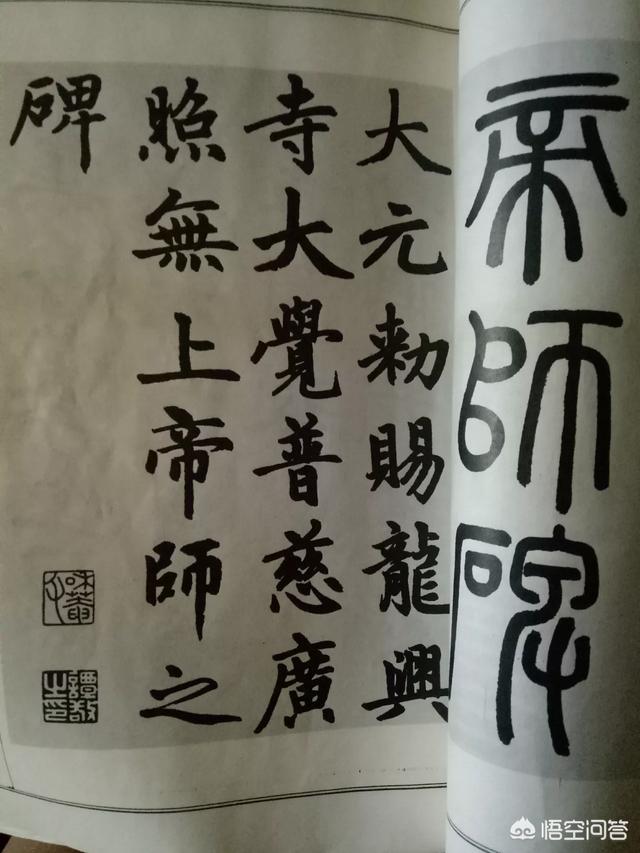 帝師碑
大元敕賜龍興
寺大覺普慈廣
照無上帝師之
碑
悟空问答